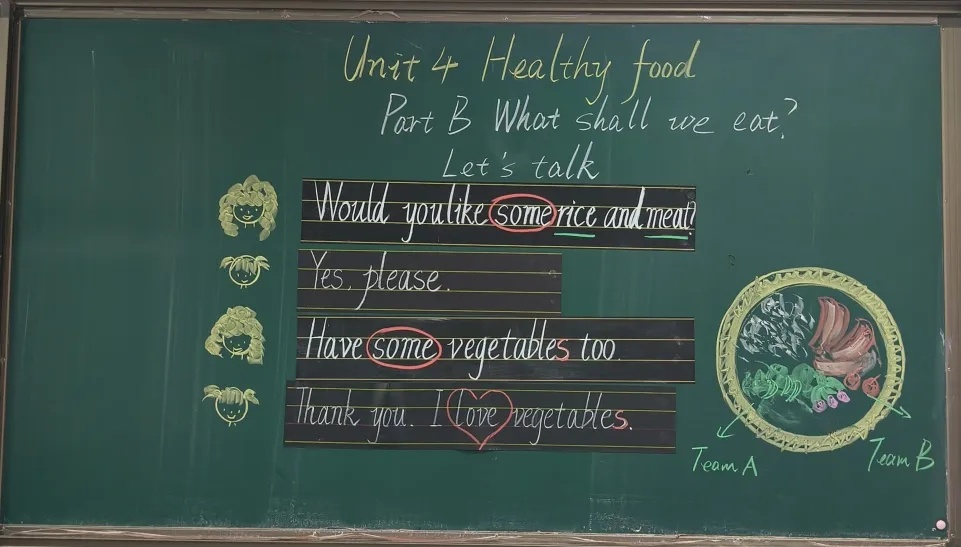 Unit 4 Healthy food
Part B What shall we eat?
Let's talk
Would you like some rice and meat?
Yes, please.
Have some vegetables too.
Thank you. I love vegetables.
Team A
Team B